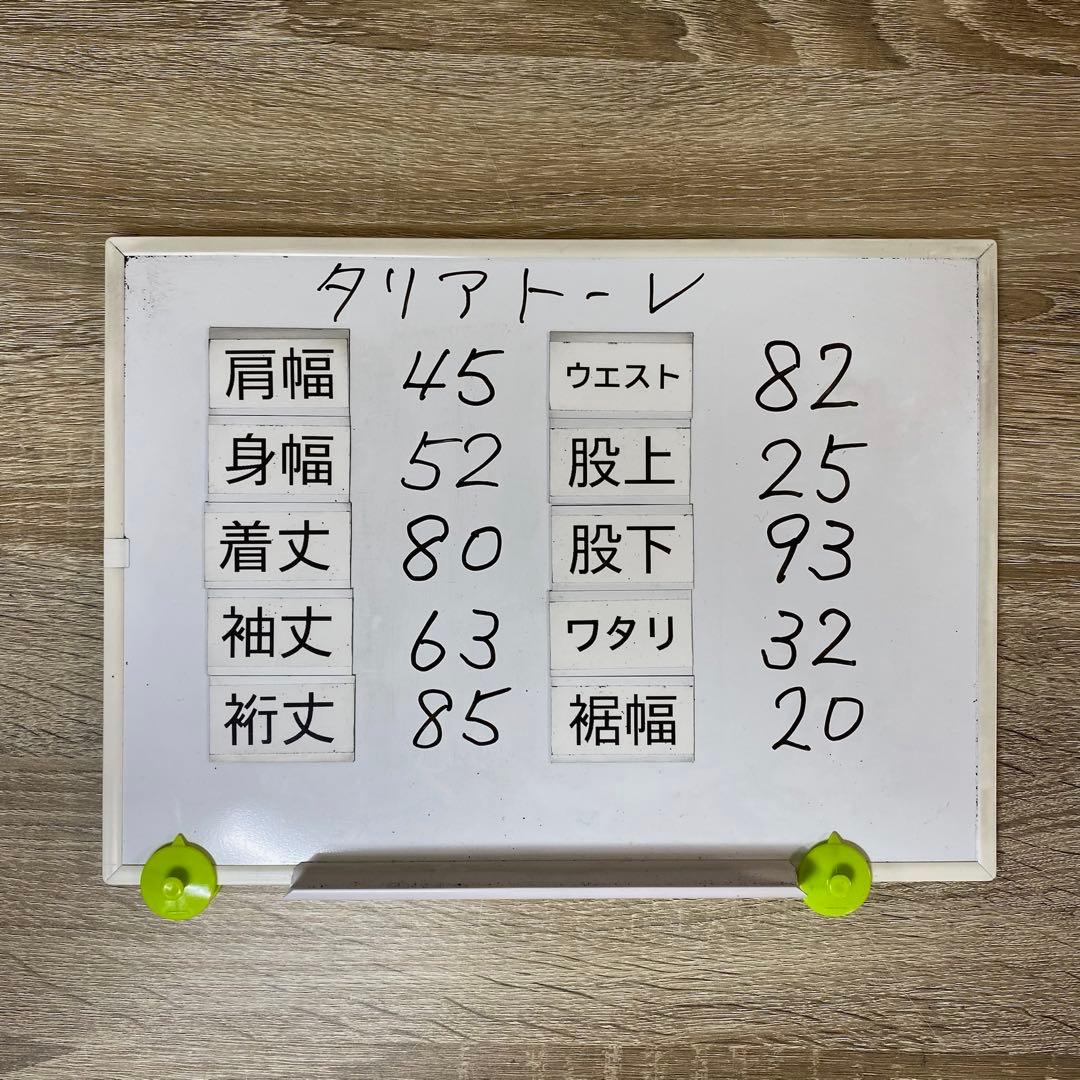 タリアトーレ
肩幅 45 ウエスト 82
身幅 52 股上 25
着丈 80 股下 93
袖丈 63 ワタリ 32
裄丈 85 裾幅 20